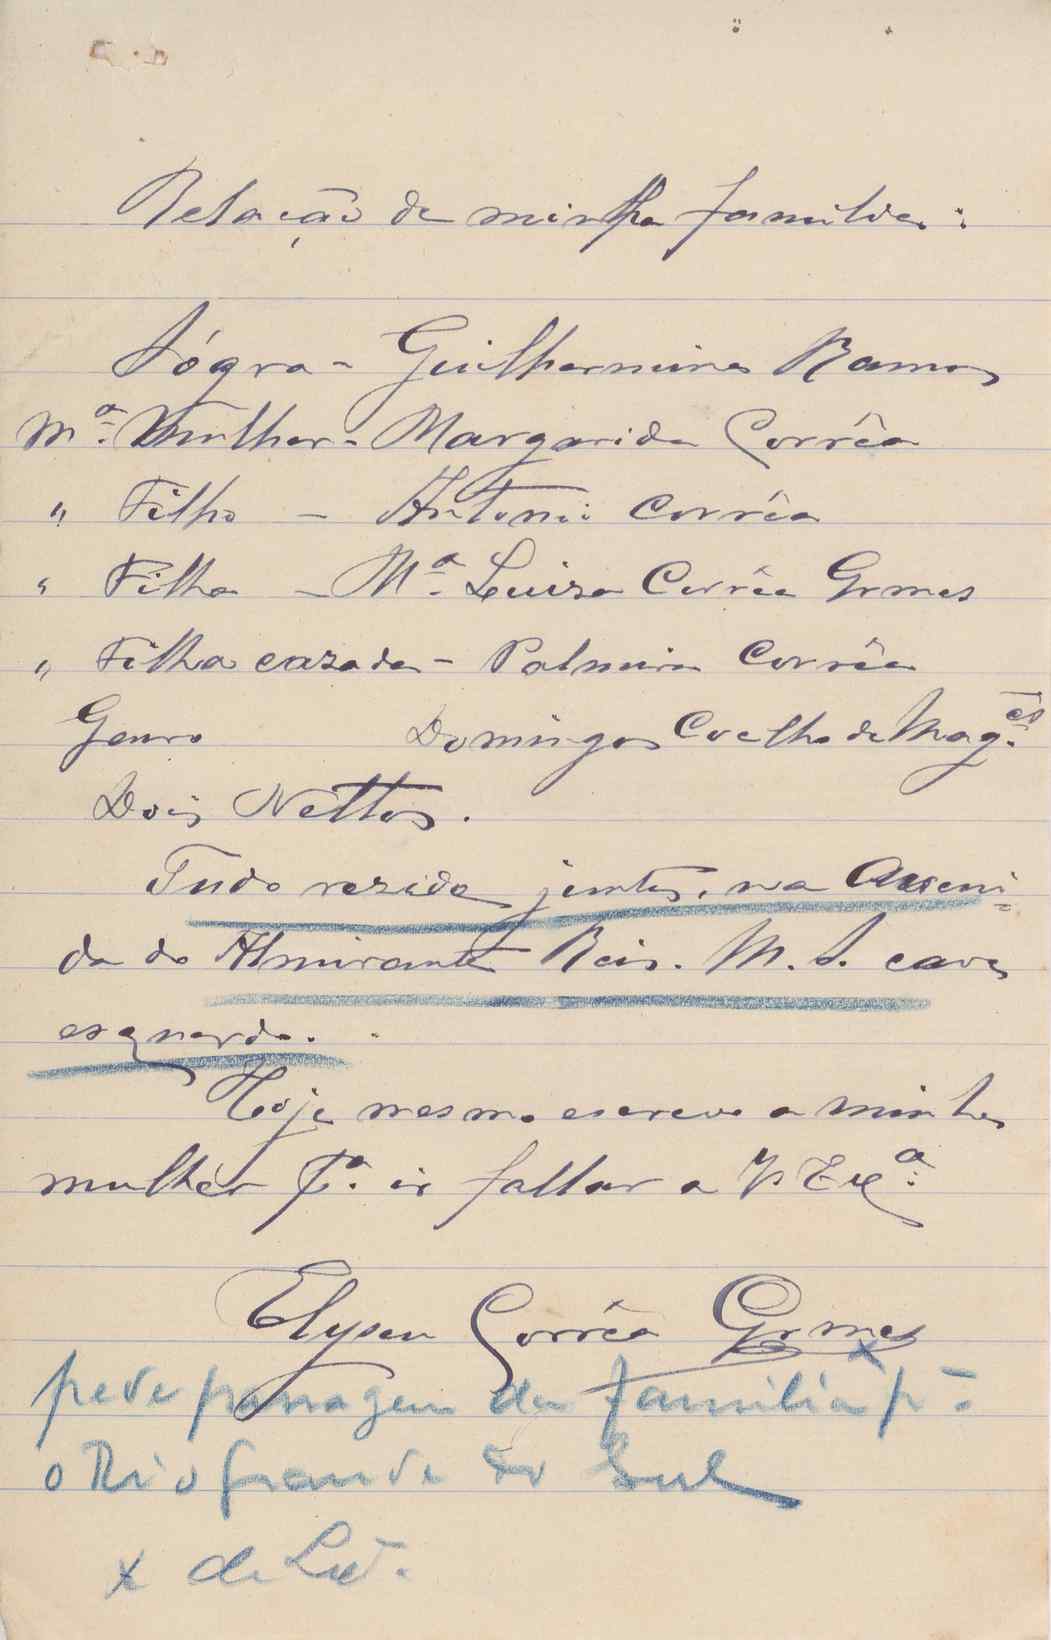 Relação da minha familia:
Sógra - Guilhermina Ramos
Mª. Mulher - Margarida Corrêa
" Filho - Antonio Corrêa
" Filha - Mª. Luiza Corrêa Gomes
" Filha cazada - Palmira Corrêa
Genro Domingos Coelho de Mag.ês
Dois Nettos.
Tudo rezide juntos, na Aveni-
da do Almirante Reis. M. S. cave
esquerda.
Hoje mesmo escrevo a minha
mulhér pª. ir fallar a V. Exª.
Elyseu Corrêa Gomes
pede passagem da familia x pª
o Rio Grande do Sul
x de Lxª.